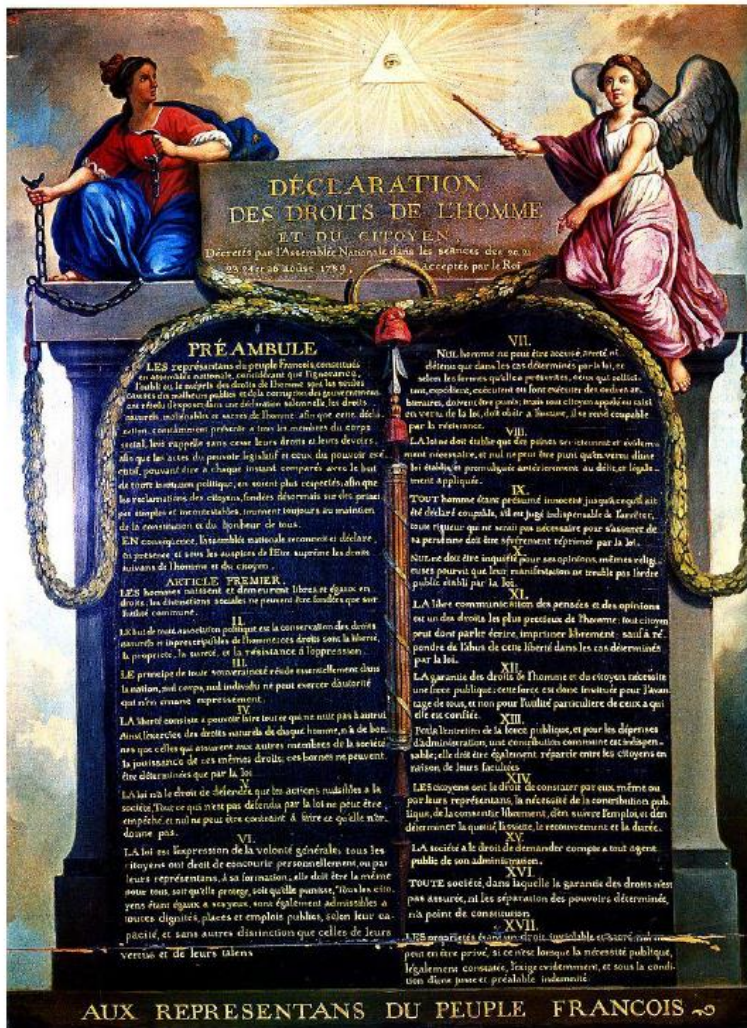 DÉCLARATION
DES DROITS DE L'HOMME
ET DU CITOYEN
Décretés par l'Assemblée Nationale dans les séances des 20. 21
23. 24 et 26 aoust 1789, acceptés par le Roi
PRÉAMBULE
LES représentans du peuple François, constitués
en assemblée nationale, considérant que l'ignorance,
l'oubli ou le mépris des droits de l'homme sont les seules
causes des malheurs publics et de la corruption des gouvernemens
ont résolu d'exposer dans une déclaration solemnelle, les droits
naturels, inaliénables et sacrés de l'homme: afin que cette décla
ration, constamment présente a tous les membres du corps
social, leur rappelle sans cesse leurs droits et leurs devoirs,
afin que les actes du pouvoir législatif et ceux du pouvoir exé
cutif, pouvant être a chaque instant comparés avec le but
de toute institution politique, en soient plus respectés; afin que
les reclamations des citoyens, fondées désormais sur des princi
pes simples et incontestables, tournent toujours au maintien
de la constitution et du bonheur de tous.
EN conséquence, l'assemblée nationale reconnoit et déclare
en présence et sous les auspices de l'Etre suprême les droits
suivans de l'homme et du citoyen.
ARTICLE PREMIER.
LES hommes naissent et demeurent libres et égaux en
droits, les distinctions sociales ne peuvent être fondées que sur
l'utilité commune.
II.
LE but de toute association politique est la conservation des droits
naturels et imprescriptibles de l'homme; ces droits sont la liberté,
la propriété, la sureté, et la résistance à l'oppression.
III.
LE principe de toute souveraineté réside essentiellement dans
la nation, nul corps, nul individu ne peut exercer d'autorité
qui n'en émane expressement.
IV.
LA liberté consiste a pouvoir faire tout ce qui ne nuit pas à autrui
Ainsi, l'exercice des droits naturels de chaque homme, n'a de bor
nes que celles qui assurent aux autres membres de la société
la jouissance de ces mêmes droits; ces bornes ne peuvent
être déterminées que par la loi
V.
LA loi n'a le droit de défendre que les actions nuisibles a la
société. Tout ce qui n'est pas défendu par la loi ne peut être
empêché, et nul ne peut être contraint à faire ce qu'elle n'or-
donne pas.
VI.
LA loi est l'expression de la volonté générale; tous les
citoyens ont droit de concourir personnellement, ou par
leurs représentans, à sa formation; elle doit être la même
pour tous, soit qu'elle protege, soit qu'elle punisse, Tous les cito
yens étant égaux a ses yeux, sont également admissibles a
toutes dignités, places et emplois publics, selon leur ca-
pacité, et sans autres distinction que celles de leurs
vertus et de leurs talens
VII.
NUL homme ne peut être accusé, arreté ni
détenu que dans les cas déterminés par la loi, et
selon les formes qu'elle a prescrites, ceux qui sollici-
tent, expédient, exécutent ou font exécuter des ordres ar-
bitraires, doivent être punis; mais tout citoyen appelé ou saisi
en vertu de la loi, doit obéir a l'instant, il se rend coupable
par la résistance.
VIII.
LA loi ne doit établir que des peines strictement et évidem-
ment nécessaire, et nul ne peut être puni qu'en vertu d'une
loi établie et promulguée antérierement au délit, et légale-
ment appliquée.
IX.
TOUT homme étant présumé innocent jusqu'a ce qu'il ait
été déclaré coupable, s'il est jugé indispensable de l'arrêter,
toute rigueur qui ne serait pas nécessaire pour s'assurer de
sa personne doit être sévèrement réprimée par la loi.
X.
NUL ne doit être inquiété pour ses opinions, mêmes religi-
euses pourvu que leur manifestation ne trouble pas l'ordre
public établi par la loi.
XI.
LA libre communication des pensées et des opinions
est un des droits les plus precieux de l'homme; tout citoyen
peut donc parler écrire, imprimer librement: sauf a ré
pondre de l'abus de cette liberté dans les cas déterminés
par la loi.
XII.
LA garantie des droits de l'homme et du citoyen nécessite
une force publique; cette force est donc instituée pour l'avan
tage de tous, et non pour l'utilité particuliere de ceux a qui
elle est confiée.
XIII.
Pour l'entretien de la force publique, et pour les dépenses
d'administration, une contribution commune est indispen-
sable; elle doit être également répartie entre les citoyens en
raison de leurs facultées
XIV.
LES citoyens ont le droit de constater par eux même ou
par leurs représentans, la nécessité de la contribution pub-
lique, de la consentir librement, d'en suivre l'emploi, et d'en
déterminer la quotité, l'assiette, le recouvrement et la durée.
XV.
LA société a le droit de demander compte a tout agent
public de son administration.
XVI.
TOUTE société, dans laquelle la garantie des droits n'est
pas assurée, ni les séparation des pouvoirs déterminée,
n'a point de constitution
XVII.
LES propriétés étant un droit inviolable et sacré, nul ne
peut en être privé, si ce n'est lorsque la nécessité publique,
légalement constatée, l'exige evidemment, et sous la condi-
tion d'une juste et préalable indemnité.
AUX REPRESENTANS DU PEUPLE FRANCOIS